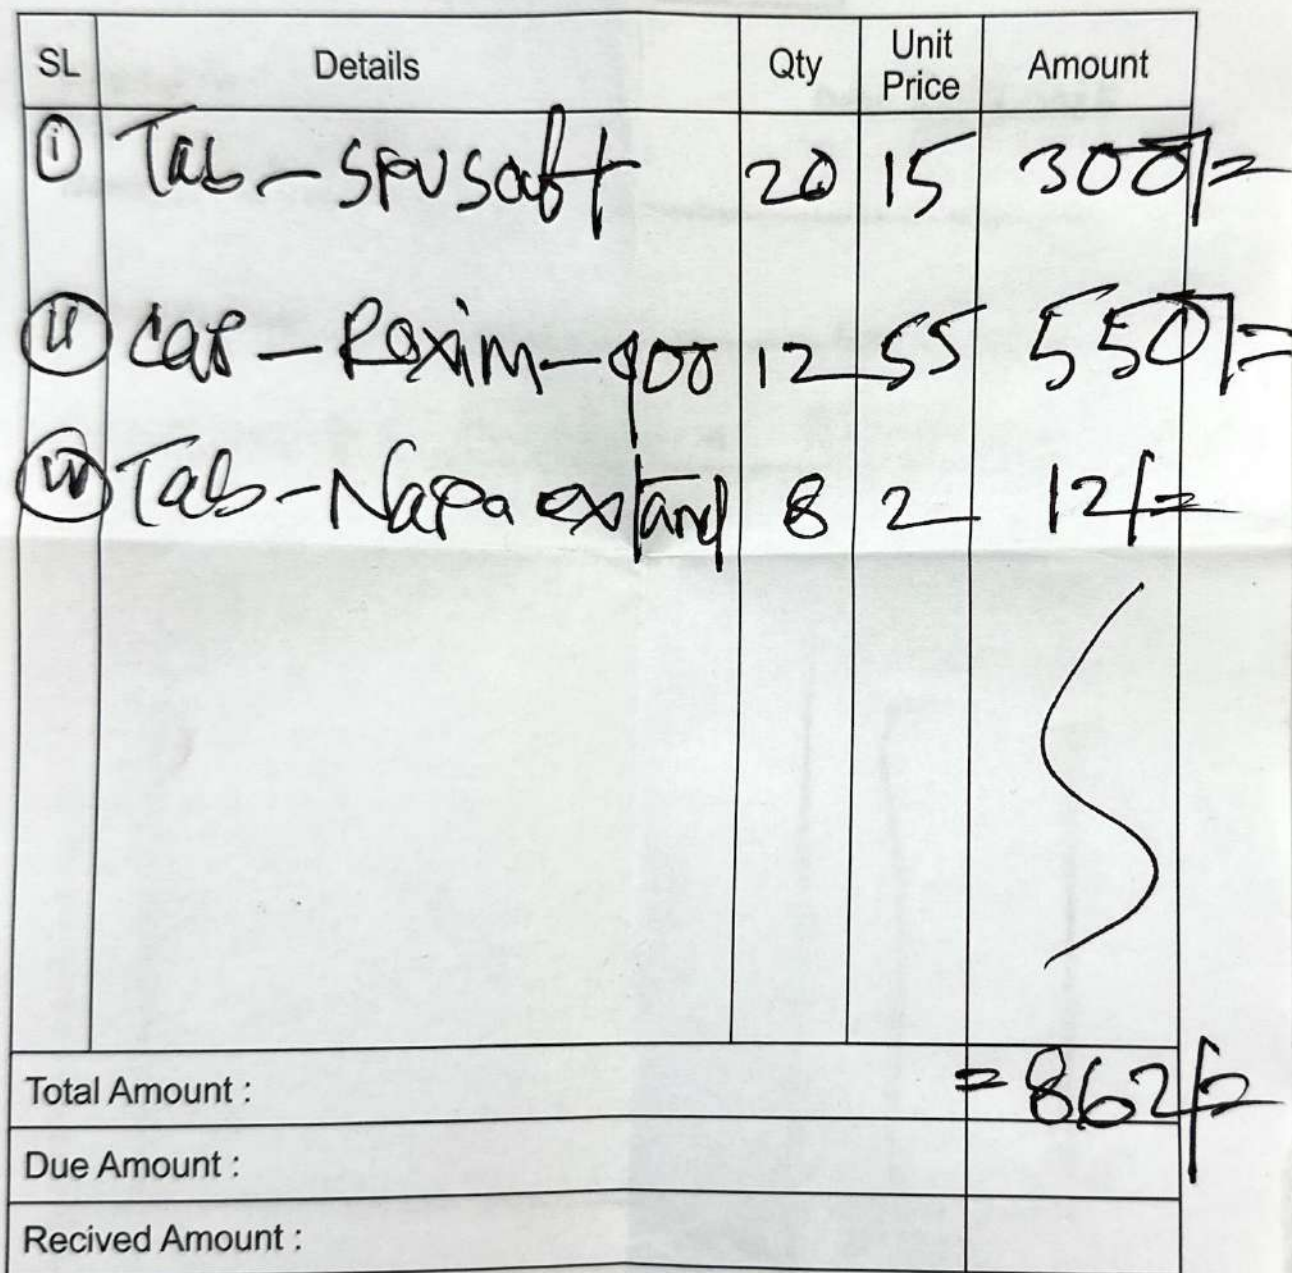 SL Details Qty Unit Price Amount
i Tab - Spusaft 20 15 300/=
ii Cap - Roxim - 400 12 55 550/=
iii Tab - Napa extand 8 2 12/=
Total Amount : = 862/=
Due Amount :
Recived Amount :